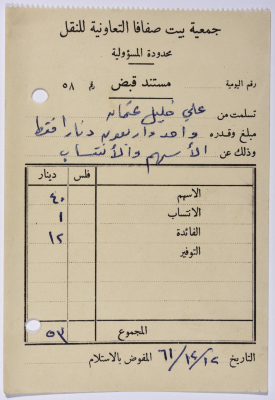 جمعية بيت صفافا التعاونية للنقل
محدودة المسؤولية
رقم اليومية مستند قبض نمرة ٥٨
تسلمت من علي خليل عثمان
مبلغ وقدره واحد واربعون دينارا فقط
وذلك عن الأسهم والأنتساب
فلس دينار
الاسهم ٤٠
الانتساب ١
الفائدة ١٢
التوفير
المجموع ٥٣
التاريخ ١٢/١٢/٦١ المفوض بالاستلام